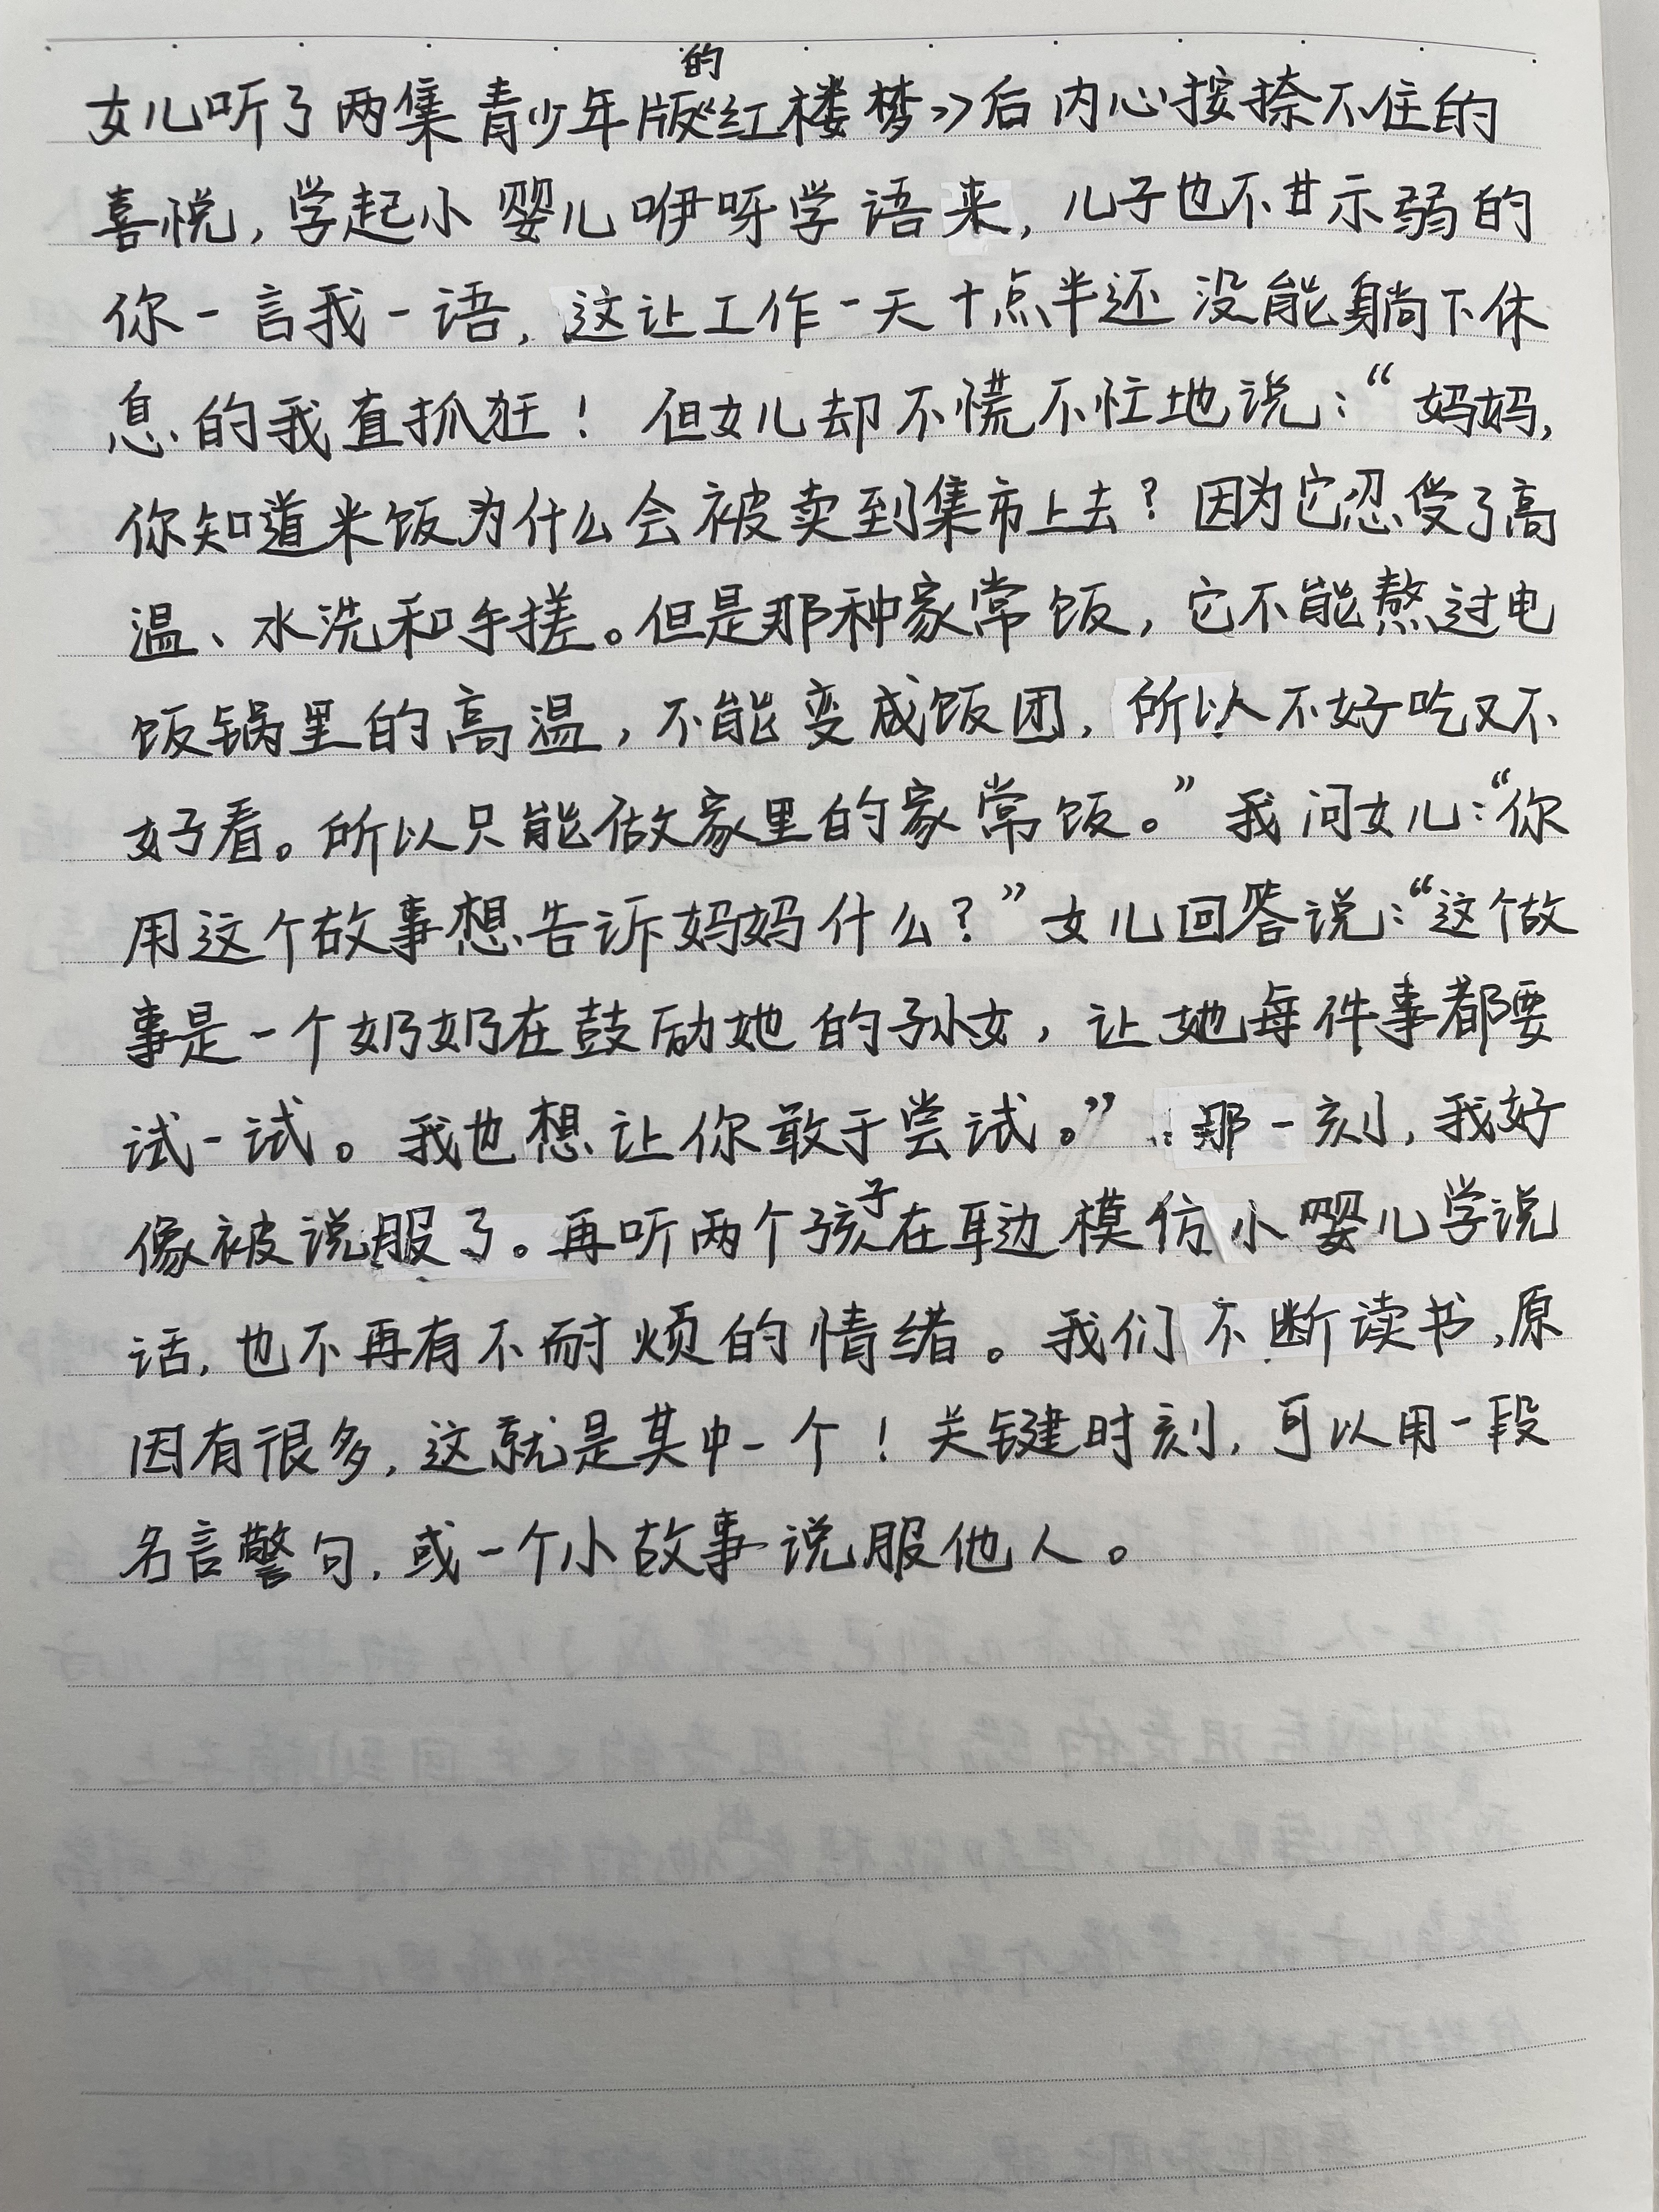 女儿听了两集青少年版的《红楼梦》后内心按捺不住的
喜悦，学起小婴儿咿呀学语来，儿子也不甘示弱的
你一言我一语，这让工作一天十点半还没能躺下休
息的我直抓狂！但女儿却不慌不忙地说：“妈妈，
你知道米饭为什么会被卖到集市上去？因为它忍受了高
温、水洗和手搓。但是那种家常饭，它不能熬过电
饭锅里的高温，不能变成饭团，所以不好吃又不
好看。所以只能做家里的家常饭。”我问女儿：“你
用这个故事想告诉妈妈什么？”女儿回答说：“这个故
事是一个奶奶在鼓励她的孙女，让她每件事都要
试一试。我也想让你敢于尝试。”那一刻，我好
像被说服了。再听两个孩子在耳边模仿小婴儿学说
话，也不再有不耐烦的情绪。我们不断读书，原
因有很多，这就是其中一个！关键时刻，可以用一段
名言警句，或一个小故事说服他人。